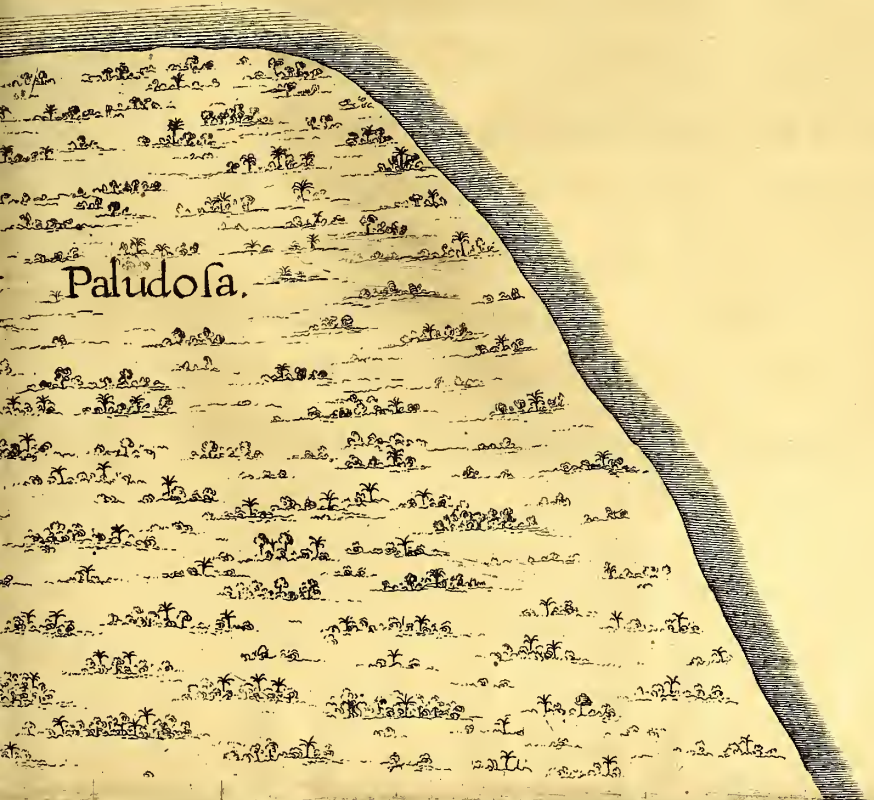 Paludoſa.